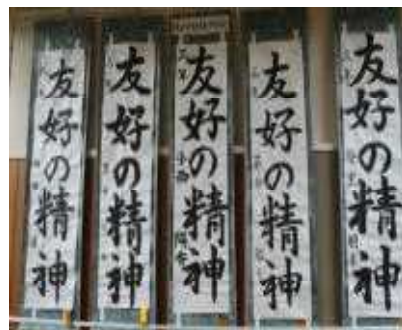 友好の精神
友好の精神
友好の精神
友好の精神
友好の精神